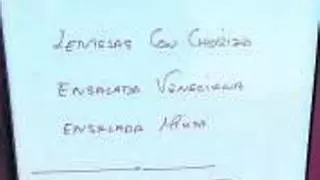 Lentejas Con Chorizo
Ensalada Veneciana
Ensalada Mixta